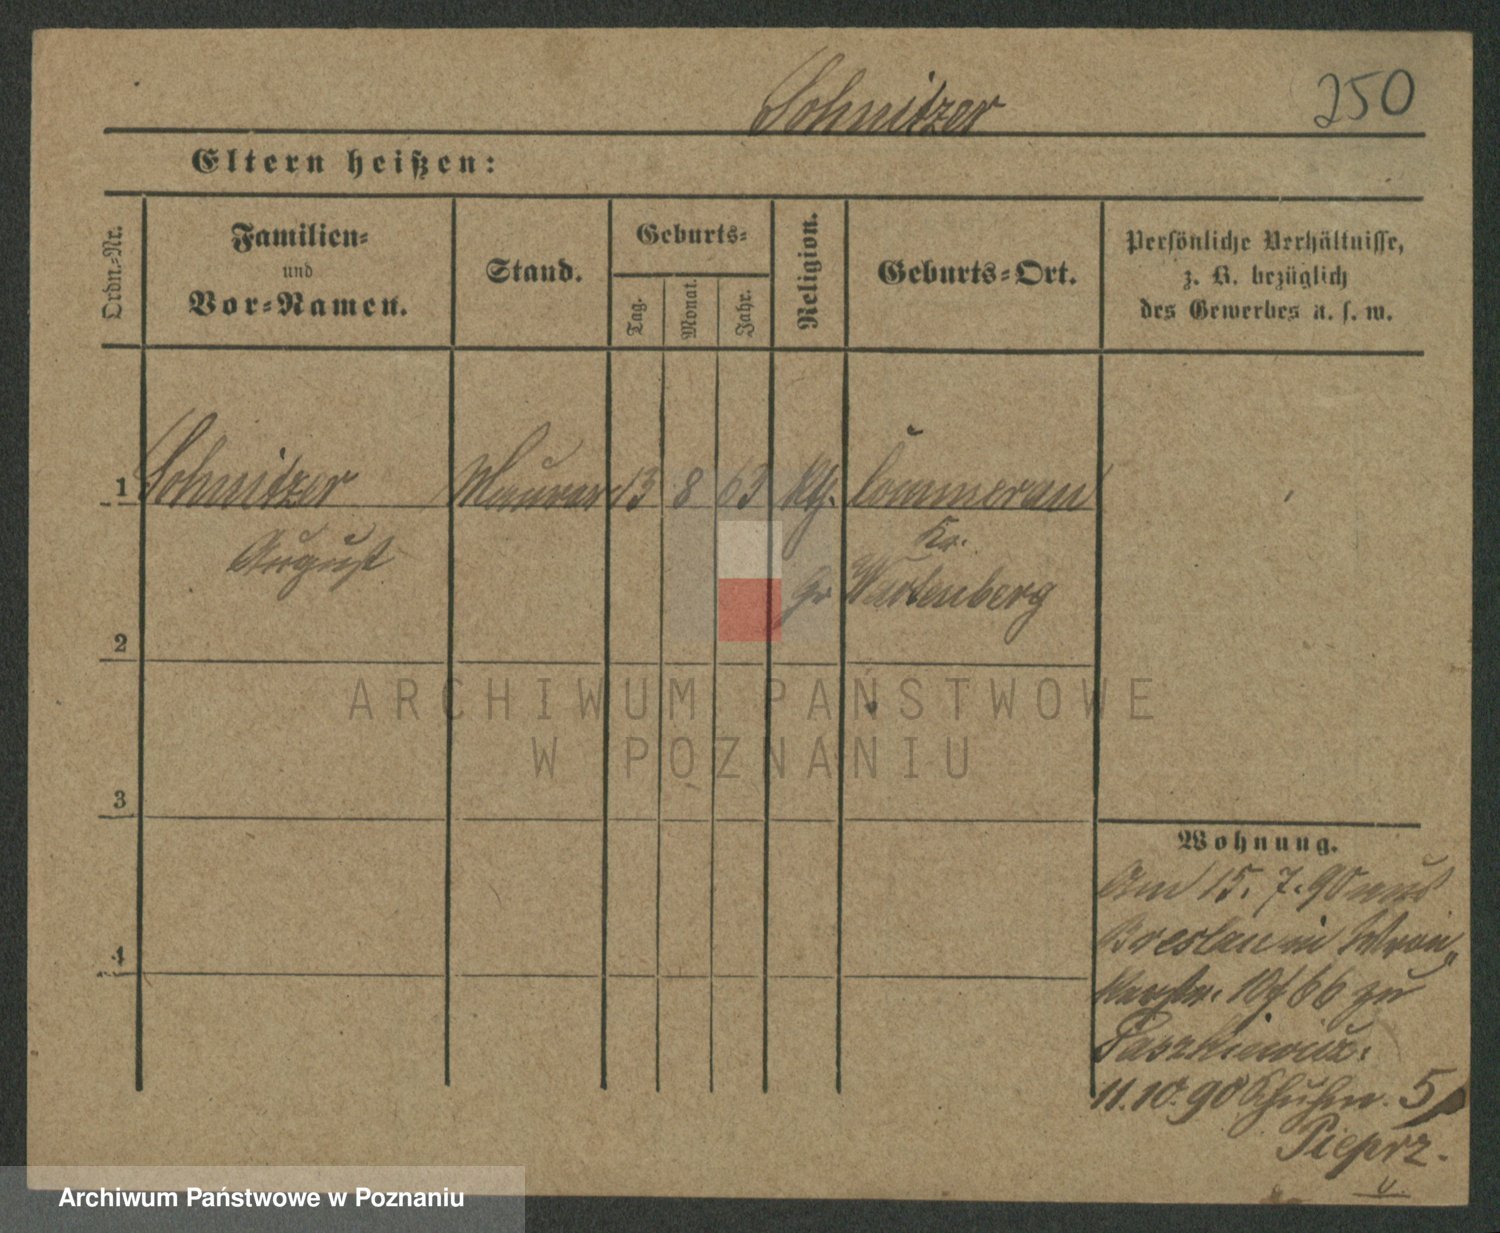 Schnitzer
250
Eltern heißen:
Ordn.-Nr.
Familien-
und
Vor-Namen.
Stand.
Geburts-
Tag.
Monat.
Jahr.
Religion.
Geburts-Ort.
Persönliche Verhältnisse,
z. B. bezüglich
des Gewerbes u. s. w.
1 Schnitzer Maurer 13 8 63 kth. Commeran
August
Kr.
Gr Wartenberg
2
3
4
ARCHIWUM PAŃSTWOWE
W POZNANIU
Wohnung.
Am 15. 7. 90 aus
Breslau in Wron„
kerstr. 10/66 zu
Paszkiewicz.
11. 10. 90 Schuhm. 5/
Pieprz.
u.
Archiwum Państwowe w Poznaniu